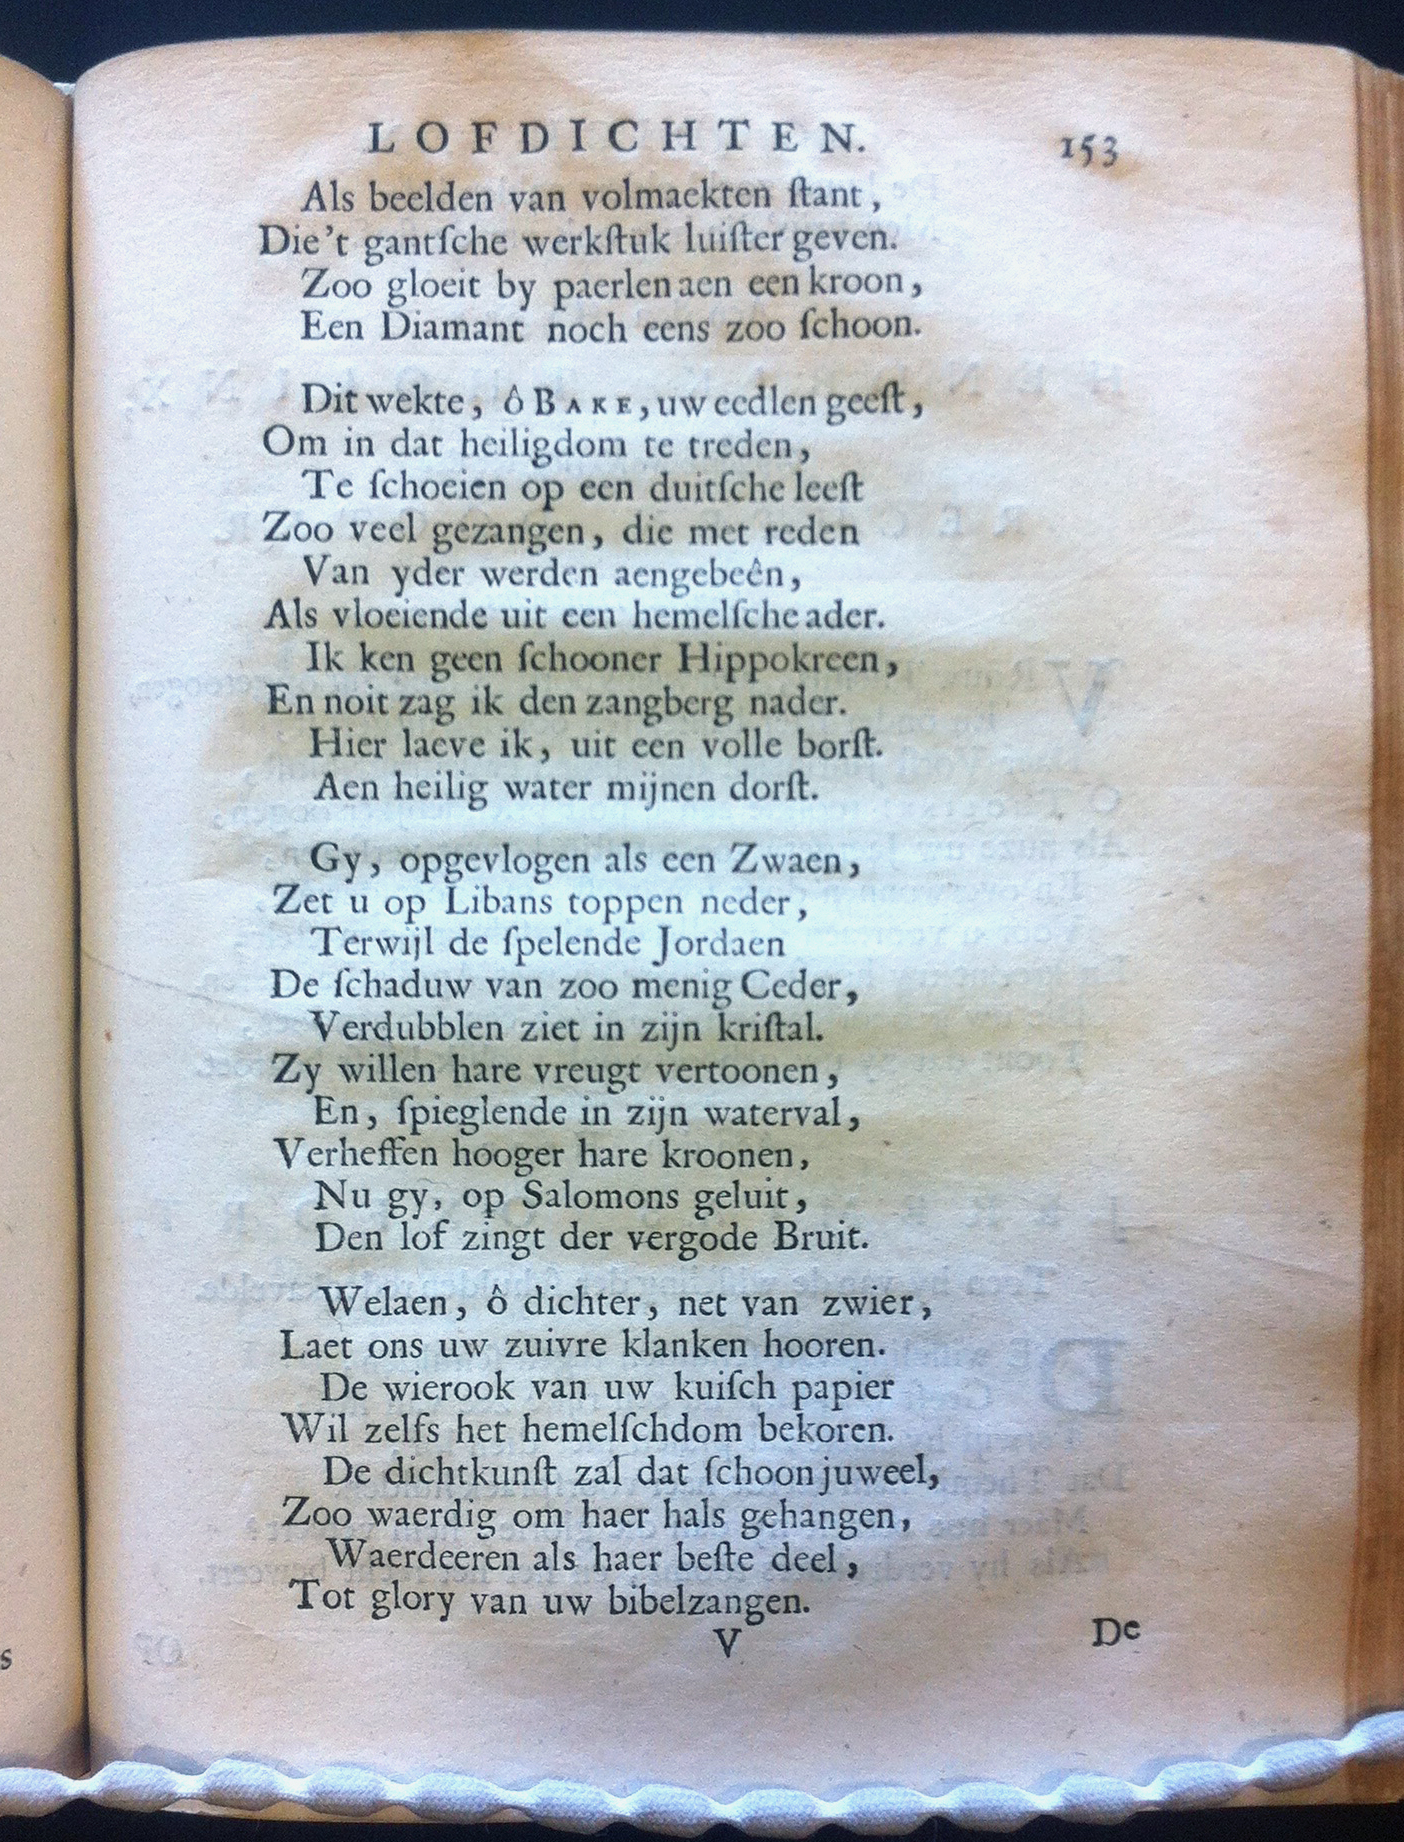 LOFDICHTEN. 153
Als beelden van volmaekten ſtant,
Die't gantſche werkſtuk luiſter geven.
Zoo gloeit by paerlen aen een kroon,
Een Diamant noch eens zoo ſchoon.
Dit wekte, ô BAKE, uw eedlen geeſt,
Om in dat heiligdom te treden,
Te ſchoeien op een duitſche leeſt
Zoo veel gezangen, die met reden
Van yder werden aengebeên,
Als vloeiende uit een hemelſche ader.
Ik ken geen ſchooner Hippokreen,
En noit zag ik den zangberg nader.
Hier laeve ik, uit een volle borſt.
Aen heilig water mijnen dorſt.
Gy, opgevlogen als een Zwaen,
Zet u op Libans toppen neder,
Terwijl de ſpelende Jordaen
De ſchaduw van zoo menig Ceder,
Verdubblen ziet in zijn kriſtal.
Zy willen hare vreugt vertoonen,
En, ſpieglende in zijn waterval,
Verheffen hooger hare kroonen,
Nu gy, op Salomons geluit,
Den lof zingt der vergode Bruit.
Welaen, ô dichter, net van zwier,
Laet ons uw zuivre klanken hooren.
De wierook van uw kuiſch papier
Wil zelfs het hemelſchdom bekoren.
De dichtkunſt zal dat ſchoon juweel,
Zoo waerdig om haer hals gehangen,
Waerdeeren als haer beſte deel,
Tot glory van uw bibelzangen.
V De